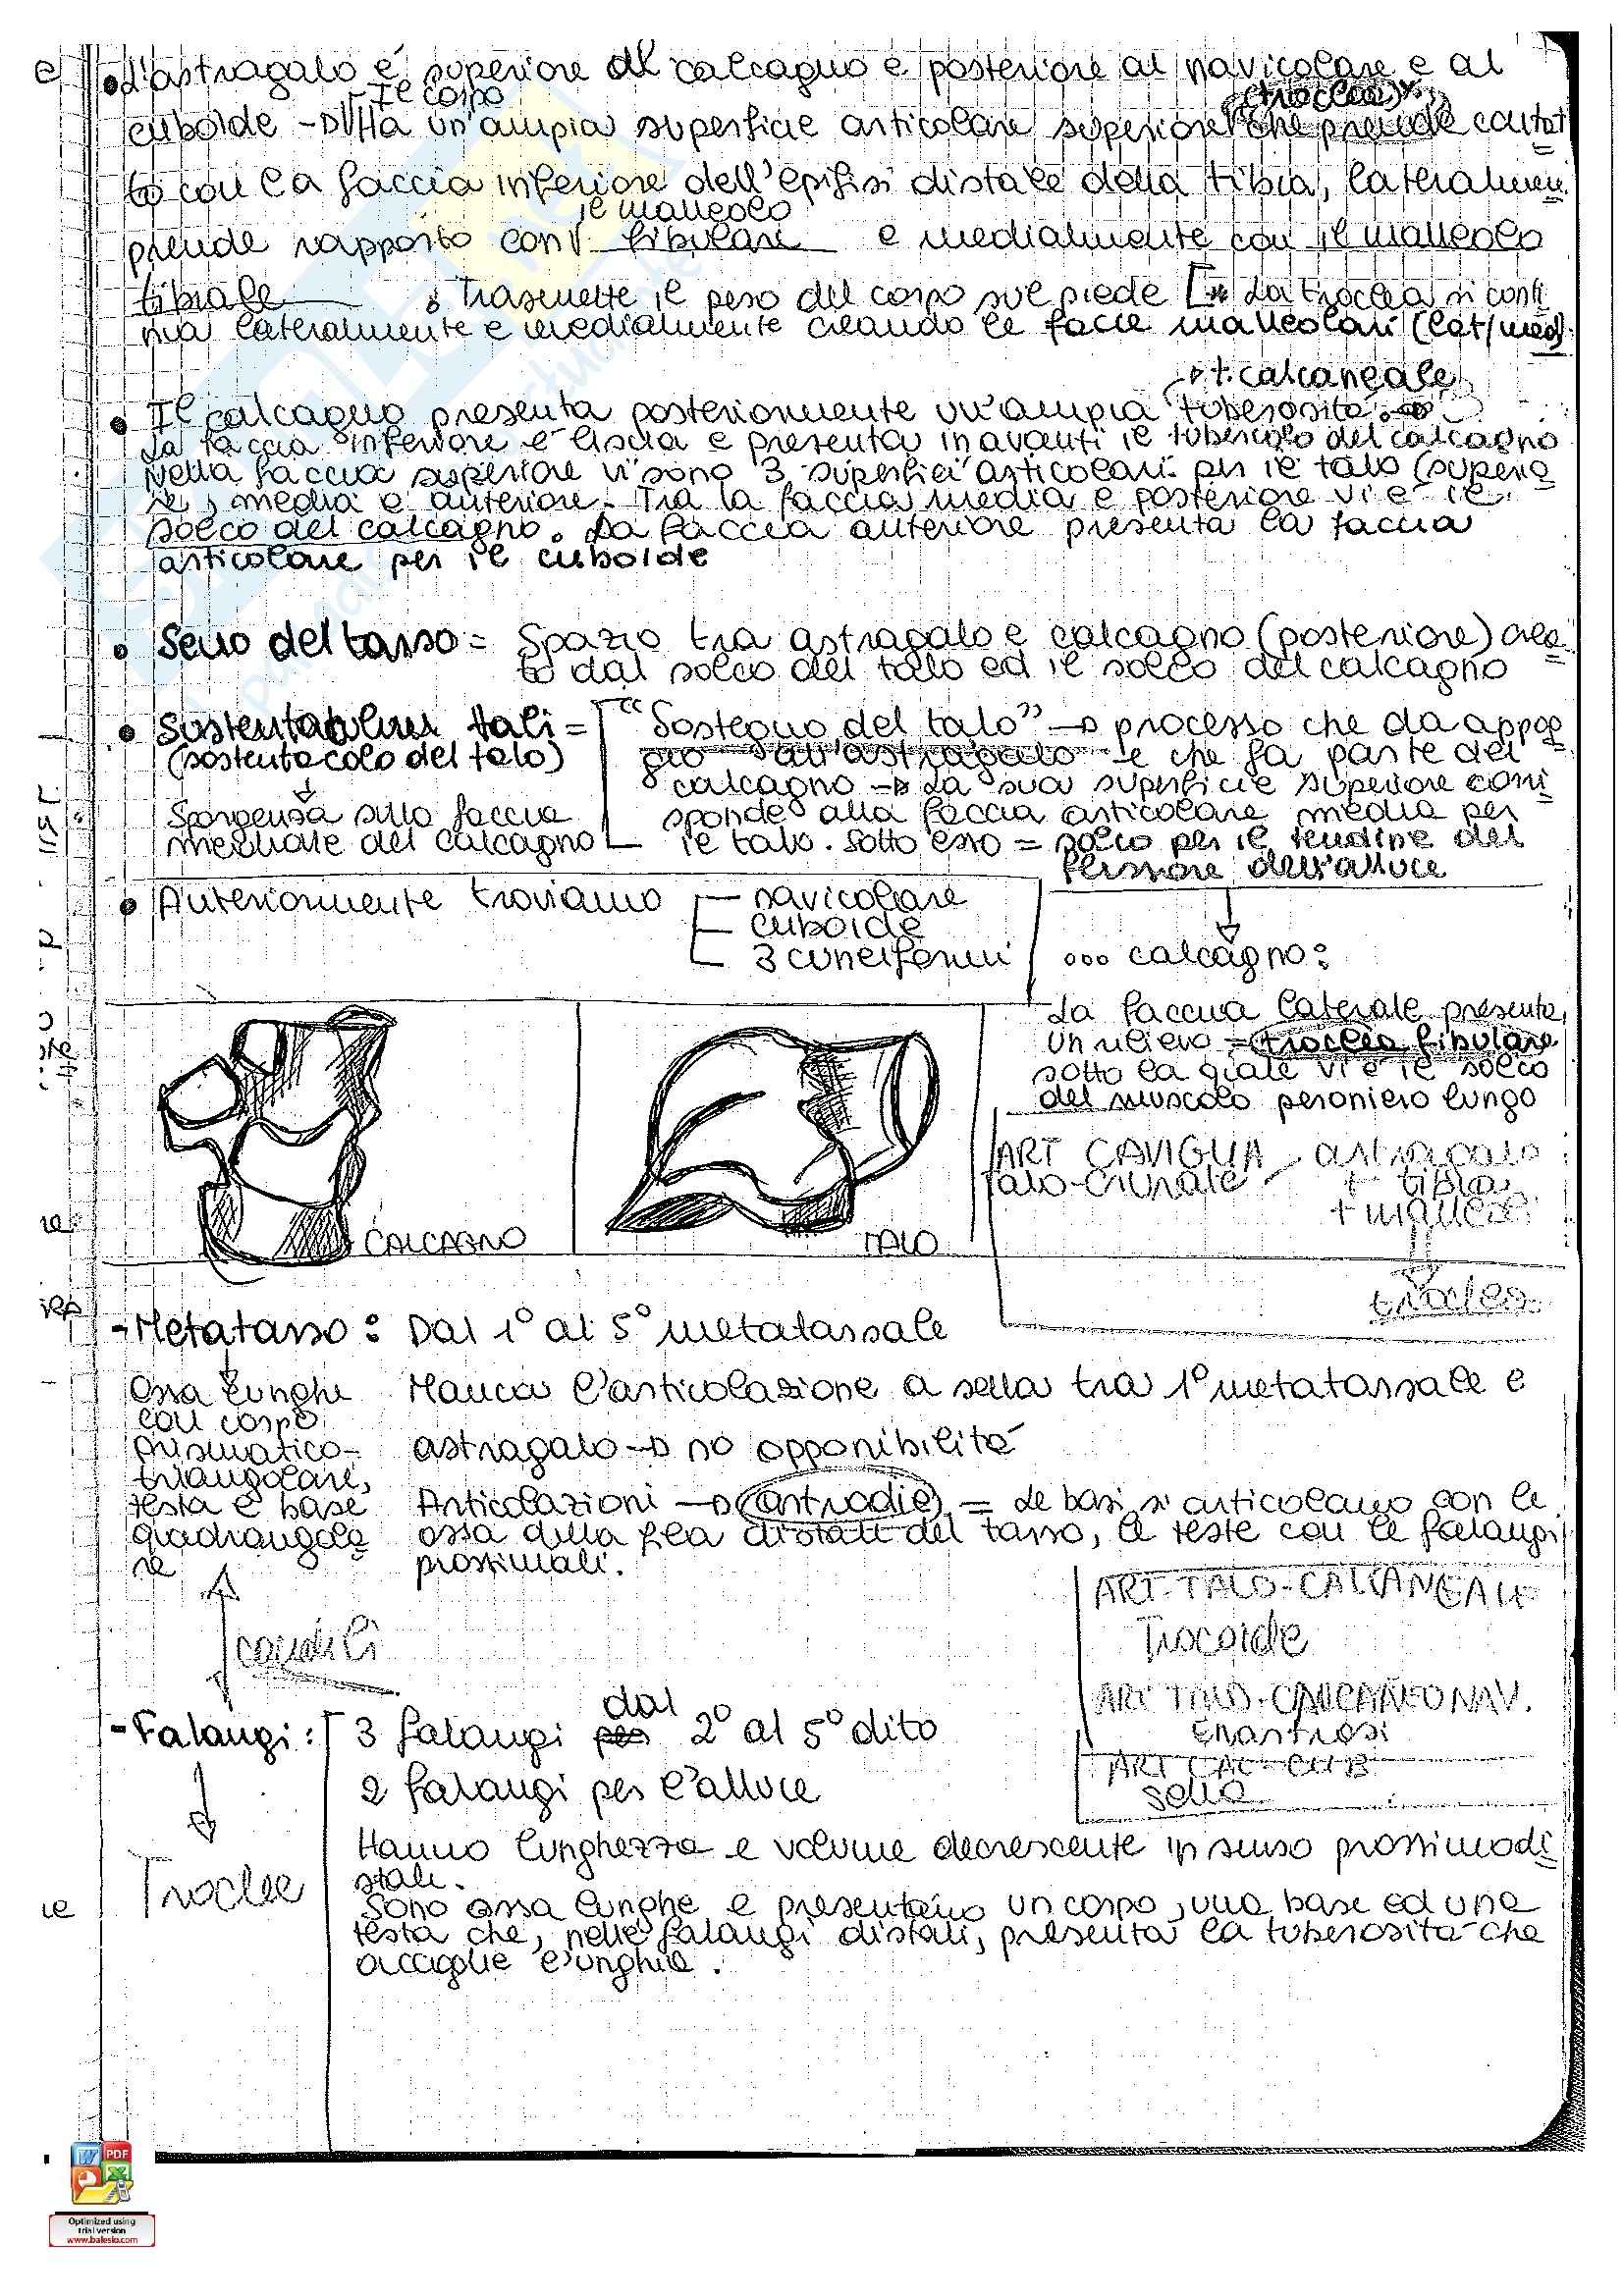 • L'astragalo é superiore al calcagno e posteriore al navicolare e al
Il corpo (troclea)*
cuboide → Ha un'ampia superficie articolare superiore che prende contat
to con la faccia inferiore dell'epifisi distale della tibia, lateralmen.
il malleolo
prende rapporto con fibulare e medialmente con il malleolo
tibiale Trasmette il peso del corpo sul piede [* La troclea si conti
nua lateralmente e medialmente creando le facce malleolari (lat/med)
→ t. calcaneale
• Il calcagno presenta posteriormente un'ampia tuberosità.
La faccia inferiore é liscia e presenta in avanti il tubercolo del calcagno
Nella faccia superiore vi sono 3 superfici articolari per il talo (superio
re, media e anteriore. Tra la faccia media e posteriore vi é il
solco del calcagno. La faccia anteriore presenta la faccia
articolare per il cuboide
• Seno del tarso = Spazio tra astragalo e calcagno (posteriore) crea
to dal solco del talo ed il solco del calcagno
• Sustentaculum tali = "Sostegno del talo" → processo che da appog
(sostentacolo del talo) gio all'astragalo e che fa parte del
calcagno → La sua superficie superiore corri
Sporgenza sulla faccia sponde alla faccia articolare media per
mediale del calcagno il talo. Sotto esso = solco per il tendine del
flessore dell'alluce
• Anteriormente troviamo navicolare
cuboide
3 cuneiformi
... calcagno:
La faccia laterale presenta
un rilievo = troclea fibulare
sotto la quale vi é il solco
del muscolo peroniero lungo
ART CAVIGLIA astragalo
Talo-Crurale + tibia
+ malleoli
troclea
CALCAGNO
TALO
- Metatarso: Dal 1° al 5° metatarsale
Ossa lunghe Manca l'articolazione a sella tra 1° metatarsale e
con corpo
prismatico- astragalo → no opponibilità
triangolari,
testa e base Articolazioni → artrodie = Le basi si articolano con le
quadrangola ossa della fila distale del tarso, le teste con le falangi
re prossimali.
condili
ART. TALO-CALCANEALE
Trocoide
ART TALO-CALCANEO NAV.
Enartrosi
ART CAL-CUB
Sella
- Falangi: 3 falangi dal 2° al 5° dito
2 falangi per l'alluce
Troclee
Hanno lunghezza e volume decrescente in senso prossimodi
stale.
Sono ossa lunghe e presentano un corpo, una base ed una
testa che, nelle falangi distali, presenta la tuberosità che
accoglie l'unghia.
W PDF
P X
Optimized using
trial version
www.balesio.com